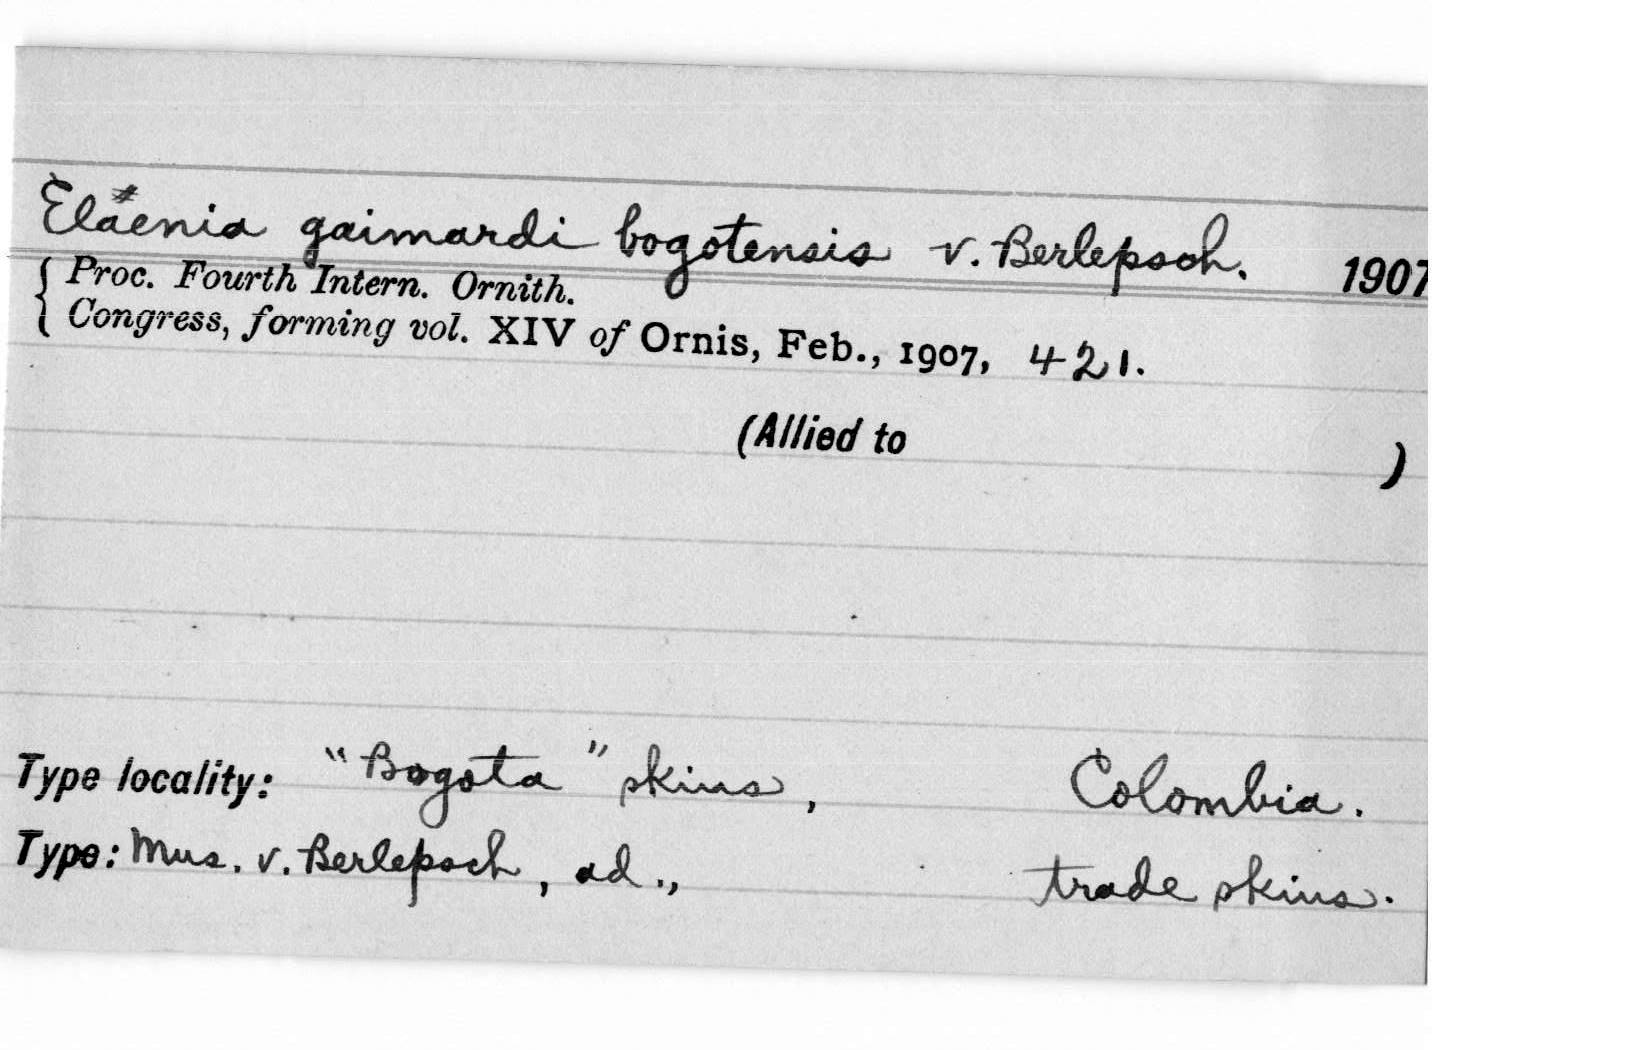 Elaenia gaimardi bogotensis v. Berlepsch. 1907
{ Proc. Fourth Intern. Ornith.
Congress, forming vol. XIV of Ornis, Feb., 1907, 421.
(Allied to )
Type locality: "Bogota" skins, Colombia.
Type: Mus. v. Berlepsch, ad., trade skins.